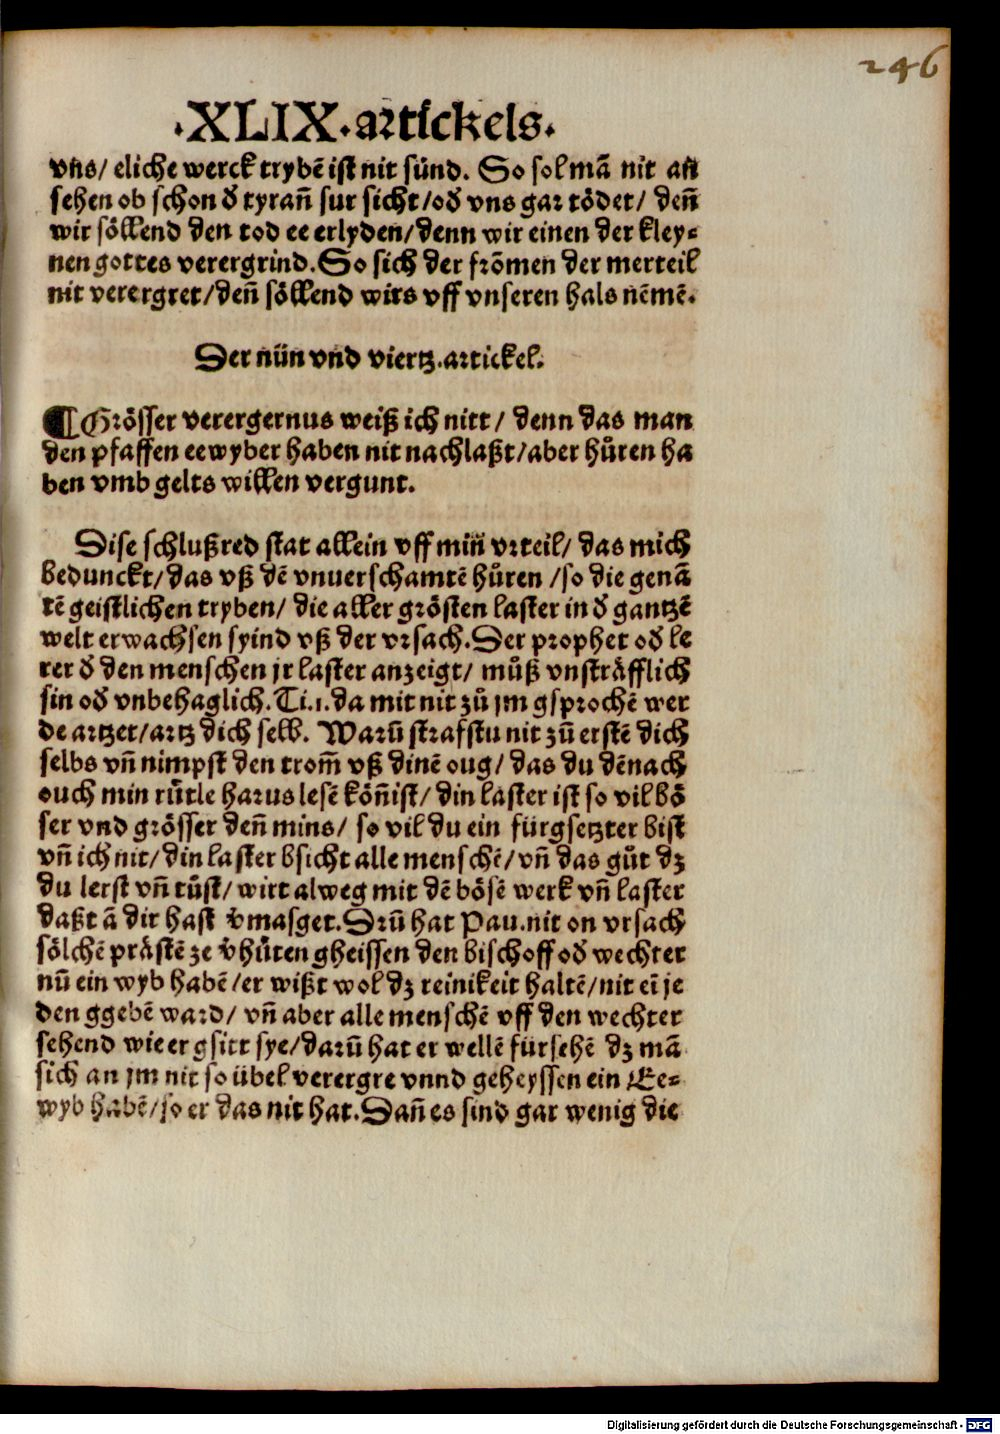 246
·XLIX·artickels·
vns/ eliche werck trybē ist nit sünd. So sol mā nit an
sehen ob schon d̄ tyrañ sur sicht/od̄ vns gar tödet/ deñ
wir söllend den tod ee erlyden/denn wir einen der kley⸗
nen gottes verergrind.So sich der frōmen der merteil
nit verergret/deñ söllend wirs vff vnseren hals nēmē.
Der nün vnd viertz.artickel.
¶Grösser verergernus weiß ich nitt/ denn das man
den pfaffen eewyber haben nit nachlaßt/aber hůren ha
ben vmb gelts willen vergunt.
Dise schlußred stat allein vff min vrteil/ das mich
bedunckt/das vß dē vnuerschamtē hůren /so die genā
tē geistlichen tryben/ die aller grösten laster in d̄ gantzē
welt erwachsen syind vß der vrsach.Der prophet od̄ le
rer d̄ den menschen jr laster anzeigt/ můß vnsträfflich
sin od̄ vnbehaglich.Ti.1.da mit nit zů jm gsprochē wer
de artzet/artz dich selb. Warū strafstu nit zů erstē dich
selbs vñ nimpst den trom̄ vß dinē oug/ das du dēnach
ouch min růtle harus lesē köñist/ din laster ist so vil bö
ser vnd grösser deñ mins/ so vil du ein fürgsetzter bist
vñ ich nit/din laster bsicht alle menschē/vñ das gůt dz
du lerst vñ tůst/ wirt alweg mit dē bösē werk vñ laster
daßt ā dir hast v̄masget.Drū hat Pau.nit on vrsach
sölchē prästē ze v̄hůten gheissen den bischoff od̄ wechter
nū ein wyb habē/er wißt wol dz reinikeit haltē/nit eī je
den ggebē ward/ vñ aber alle menschē vff den wechter
sehend wie er gsitt sye/darū hat er wellē fürsehē dz mā
sich an jm nit so übel verergre vnnd geheyssen ein Ee⸗
wyb habē/so er das nit hat.Dañ es sind gar wenig die
Digitalisierung gefördert durch die Deutsche Forschungsgemeinschaft - DFG